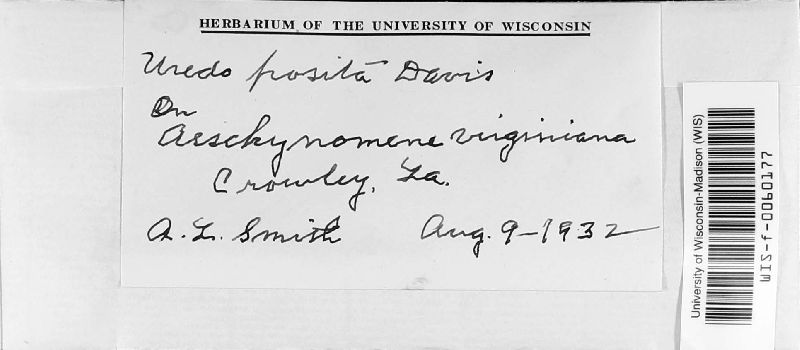 HERBARIUM OF THE UNIVERSITY OF WISCONSIN
Uredo posita Davis
On
Aeschynomene virginiana
Crowley, La.
A. L. Smith Aug. 9-1932
University of Wisconsin-Madison (WIS)
WIS-f-0060177